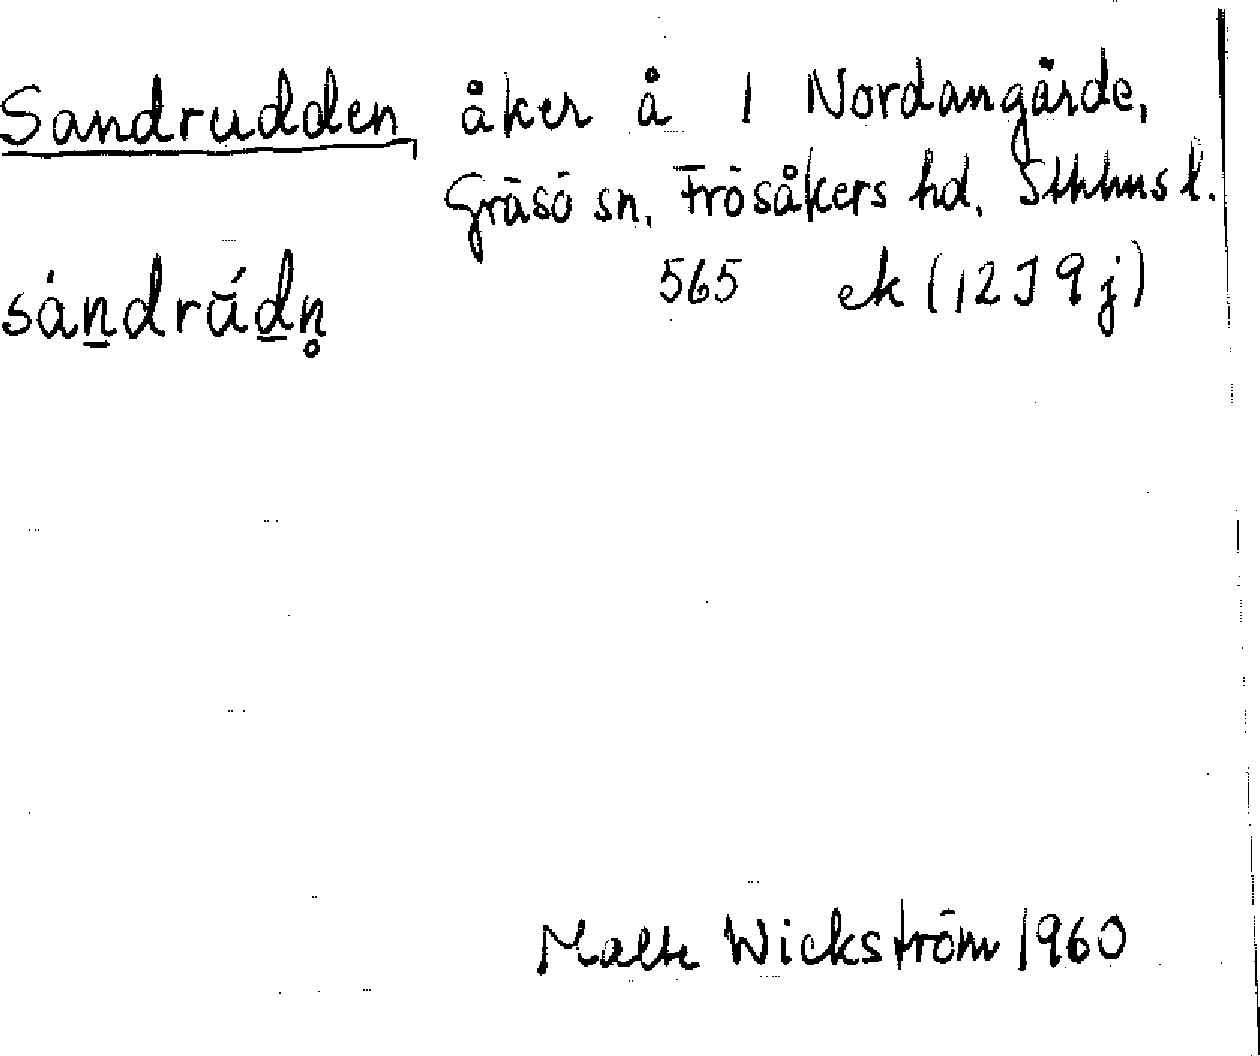 Sandrudden, åker å 1 Nordangärde,
Gräsö sn, Frösåkers hd, Sthlms l.
sá̀n̲drŭ́d̲n̥ 565 ek (12 I 9 j)
Malte Wickström 1960